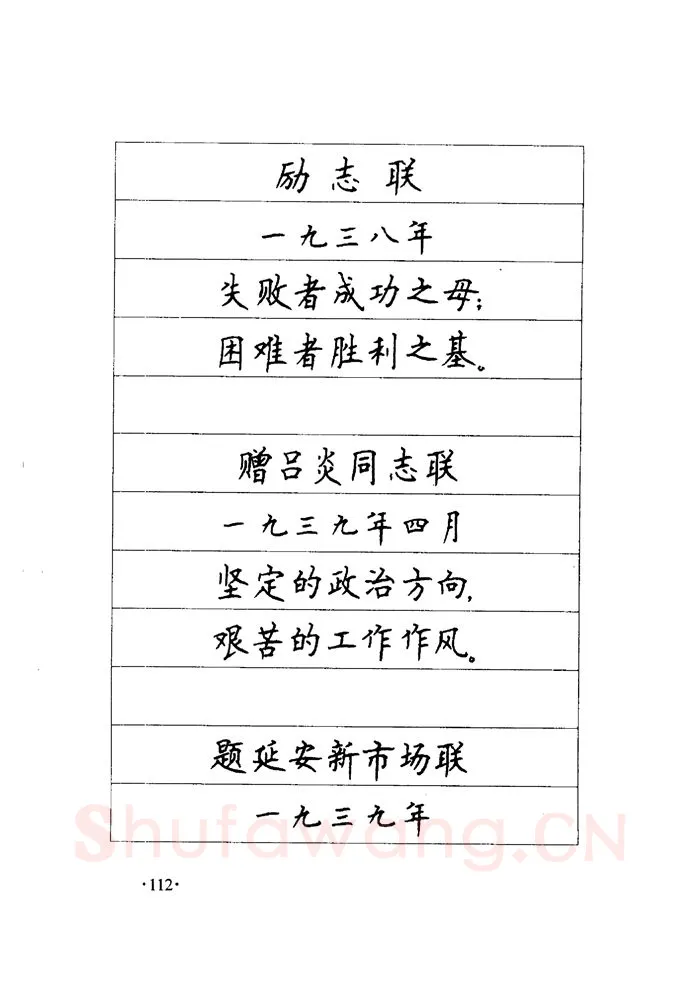 励志联
一九三八年
失败者成功之母；
困难者胜利之基。
赠吕炎同志联
一九三九年四月
坚定的政治方向，
艰苦的工作作风。
题延安新市场联
一九三九年
Shufawang.CN
·112·